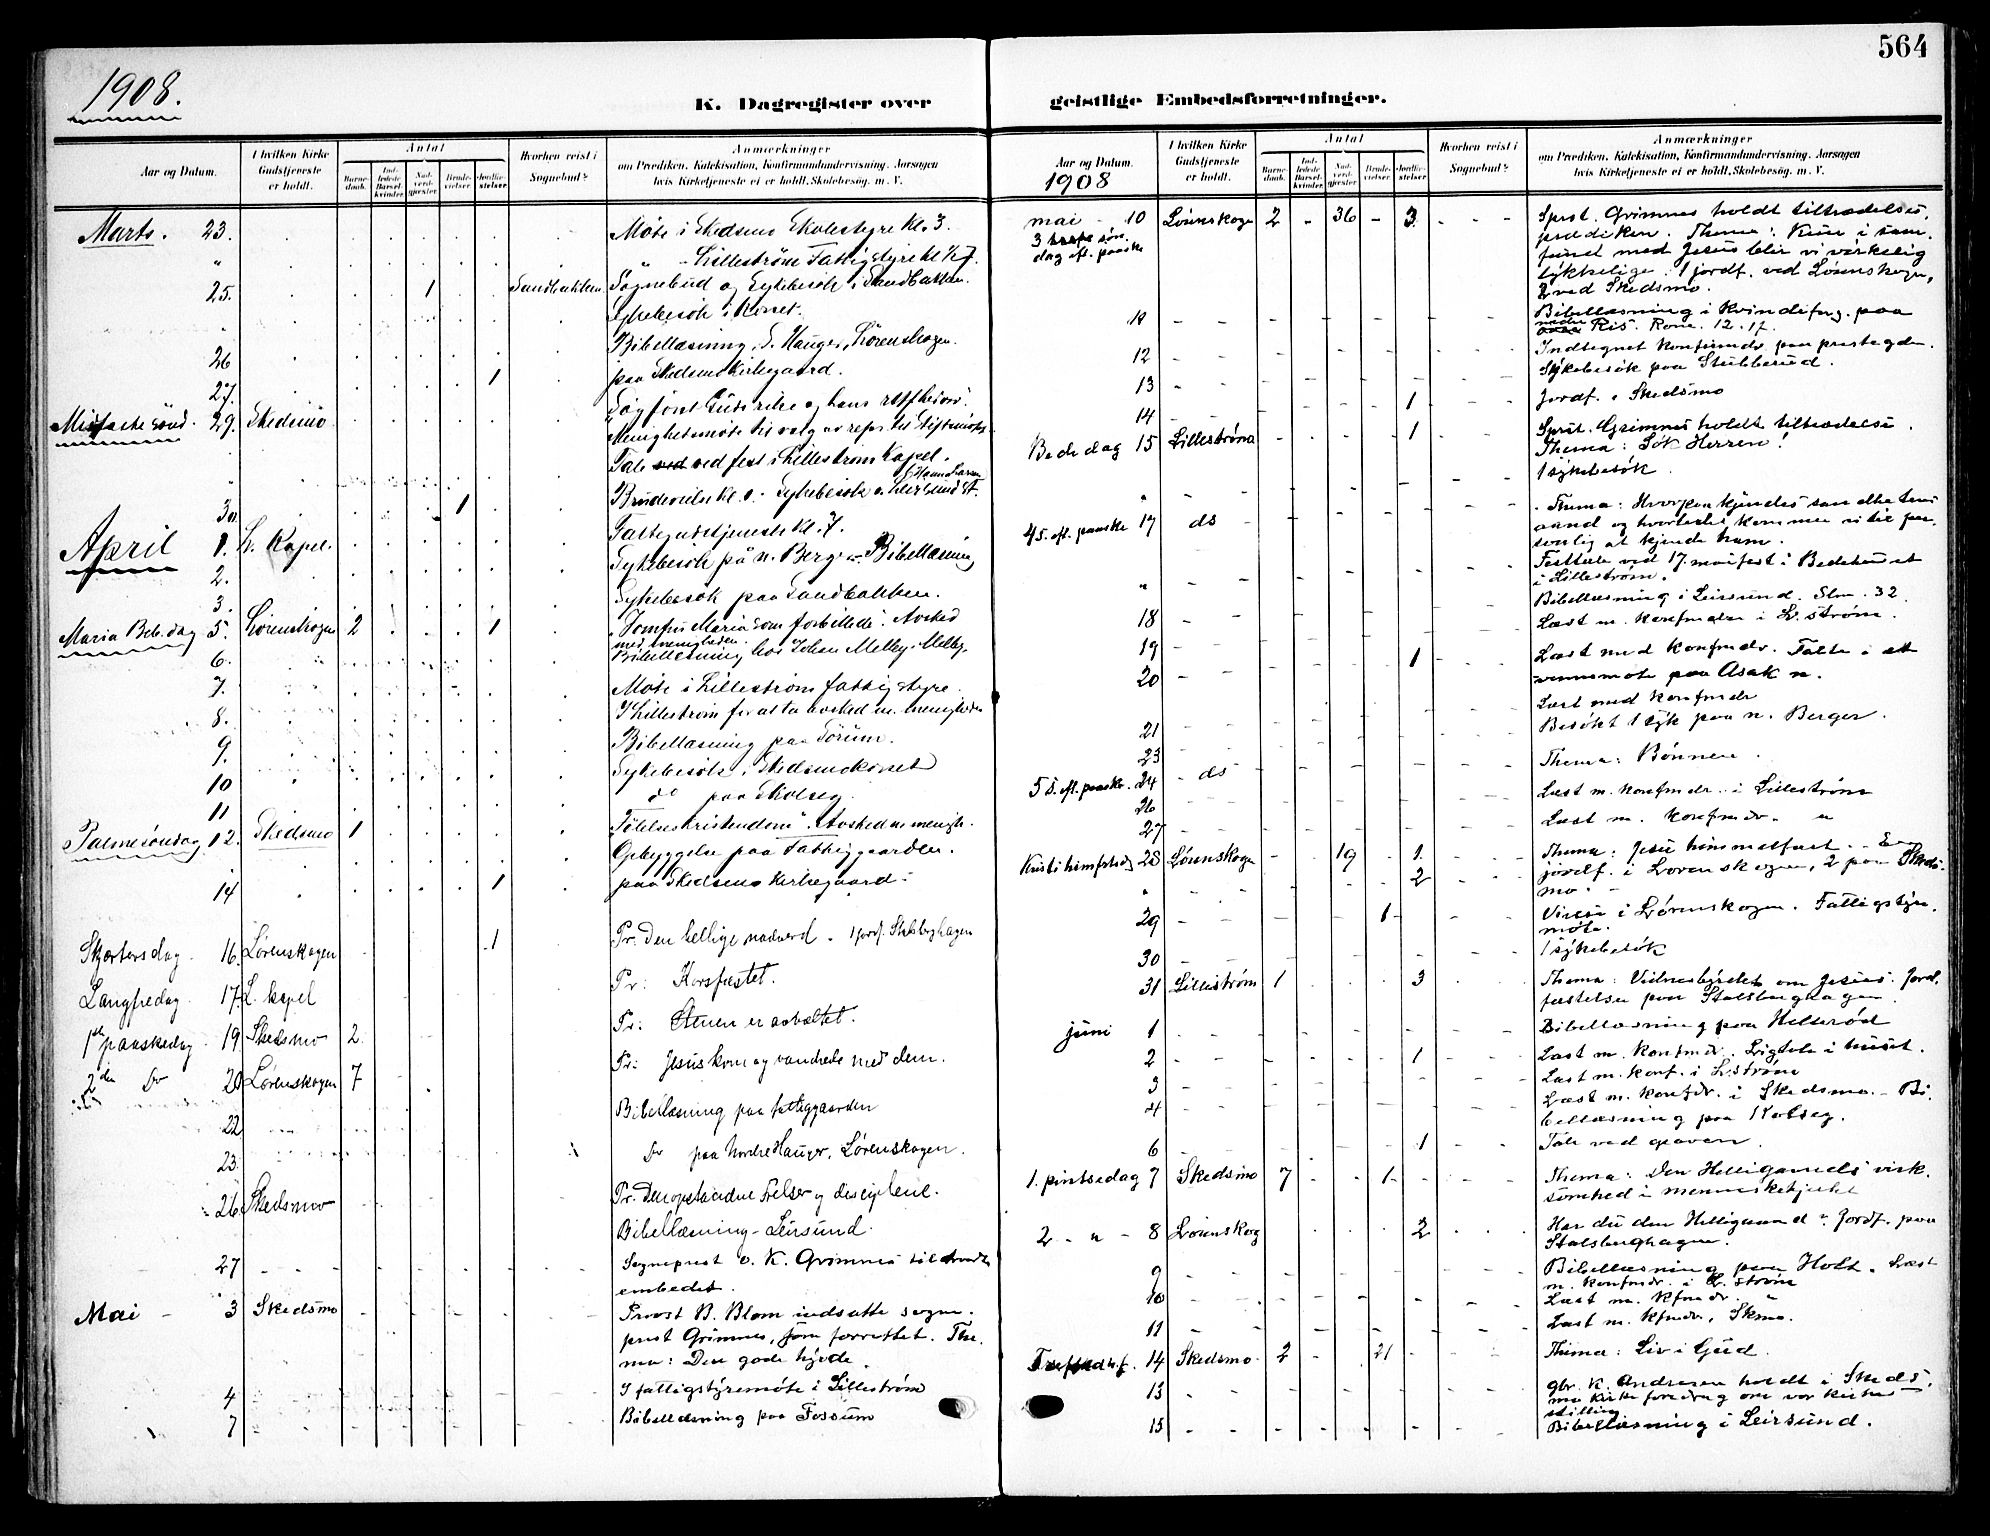 564
1908.
K. Dagregister over
geistlige Embedsforretninger.
Aar og Datum.
I hvilken Kirke Gudstjeneste er holdt.
Antal
Barne-daab.
Ind-ledede Barsel-kvinder
Nad-verd-gjester
Brude-vielser
Jordfæ-stelser
Hvorhen reist i Sognebud?
Anmærkninger
om Prædiken, Katekisation, Konfirmandundervisning. Aarsagen
hvis Kirketjeneste ei er holdt. Skolebesøg. m. V.
Marts. 23. Møte i Skedsmo Skolestyre kl. 3.
" " Lillestrøm Fattigstyre kl.
25. 1 Sandbakken Sognebud og Sykebesøk i Sandbakken.
Sykebesøk i
26 Bibellæsning, S. Hauger, Lørenskogen.
27. 1 paa Skedsmo Kirkegaard.
29. Skedsmo Søg først Guds rike og hans
Menighetsmøte til valg av repr. til Stiftsmøte
Tale ved fest i Lillestrøm Kapel.
30. 1 Sykebesøk
April 1. L. Kapel. Fastegudstjeneste kl. 7.
2. Sykebesøk på n. Berger Bibellæsning
3. Sykebesøk paa Sandbakken.
Maria Beb. dag 5. Lørenskogen 2 1 "Jomfru Maria som forbillede". Avsked
med menigheden.
6. Bibellæsning hos Johan Melby, Melby.
7. Møte i Lillestrøm fattigstyre.
8. I Lillestrøm for at ta avsked m. menigheden
9. Bibellæsning paa Sørum.
10 Sykebesøk i Skedsmokorset
11 do paa Skolseg.
Palmesøndag 12. Skedsmo 1 "Følelseskristendom". Avsked m. menigh.
Opbyggelse paa Fattiggaarden.
14 1 paa Skedsmo Kirkegaard.
Skjærtorsdag 16. Lørenskogen 1 Pr. Den hellige nadverd. 1 jordf. Stalsberghagen
Langfredag 17. L. kapel Pr: Korsfæstet.
1ste paaskedag 19 Skedsmo 2. Pr: Stenen er avvæltet.
2den Do 20 Lørenskogen 7 Pr: Jesus kom og vandrede med dem.
22 Bibellæsning paa fattiggaarden
23. Do paa Nordre Hauger, Lørenskogen.
26 Skedsmo Pr. Den opstandne Frelser og disciplene.
Bibellæsning - Leirsund.
27 Sogneprest O. K. Grimnes tiltraadte
embedet.
Mai 3 Skedsmo Provst B. Blom indsatte sogne-
prest Grimnes, som forrettet. The-
ma: Den gode hyrde.
4 I fattigstyremøte i Lillestrøm
7 Bibellæsning paa Fossum
Aar og Datum.
1908
I hvilken Kirke Gudstjeneste er holdt.
Antal
Barne-daab.
Ind-ledede Barsel-kvinder
Nad-verd-gjester
Brude-vielser
Jordfæ-stelser
Hvorhen reist i Sognebud?
Anmærkninger
om Prædiken, Katekisation, Konfirmandundervisning. Aarsagen
hvis Kirketjeneste ei er holdt. Skolebesøg. m. V.
mai 10 Lørenskogen 2 - 36 - 3. Sprst. Grimnes holdt tiltrædelses-
3 søn- prædiken. Thema: Kun i sam-
dag eft. paaske fund med Jesus blir vi virkelig
lykkelige. 1 jordf. ved Lørenskogen,
2 ved Skedsmo.
11 Bibellæsning i Kvindeforg. paa
nedre Ris. Rom. 12. 17.
12 Indtegnet konfirmdr. paa prestegden.
13 Sykebesøk paa Stubberud.
14 1 Jordf. i Skedsmo
Bededag 15 Lillestrøm 1 Sprst. Grimnes holdt tiltrædelse.
Thema: Søk Herren!
" 1 sykebesøk.
4 S. eft. paaske 17 ds Thema: Hvorpaa kjendes sandhetens
aand og hvorledes kommer vi til per-
sonlig at kjende ham.
" Festtale ved 17. maifest i Bedehuset
i Lillestrøm.
18 Bibellæsning i Leirsund. Slm. 32.
19 Læst m. konfmder i L. strøm.
20 1 Læst med konfmdr. Talte i et
vennemøte paa Asak n.
21 Læst med konfmdr
23 Besøkt 1 syk paa n. Berger.
5 S. eft. paaske. 24 ds Thema: Bønnen.
26 Læst m. konfmdr. i Lillestrøm
27 Læst m. konfmdr. "
Kristi himfrtsdg 28 Lørenskogen 19 1. Thema: Jesu himmelfart. En
" 2 jordf. i Lørenskogen, 2 paa Skeds-
mo.
29 1 Vielse i Lørenskogen. Fattigstyre-
møte.
30 1 sykebesøk
31 Lillestrøm 1 3 Thema: Vidnesbyrdet om Jesus. Jord-
fæstelse paa Stalsberghagen.
juni 1 Bibellæsning paa Hellerød
2 1 Læst m. konfmdr. Ligtale i huset.
3 Læst m. konf. i L. strøm
4 Læst m. konfdr. i Skedsmo. - Bi-
bellæsning paa Kolseg.
6 1 Tale ved graven.
1. pintsedag 7 Skedsmo 7 1 Thema: Den Helligaands virk-
somhed i menneskehjertet
2 - " - 8 Lørenskog 2 Har du den Helligaand? Jordf. paa
Stalsberghagen.
9 Bibellæsning paa Holt. Læst
m. konfmdr. i L. strøm
10 Læst m. kfmdr. "
11 Læst m. kfmdr. Skmo.
14 Skedsmo 2 21 Thema: Liv i Gud.
13 gbr. K. Andresen holdt i Skeds-
mo kirke foredrag om vor kirkes
stilling
15 Bibellæsning i Leirsund.